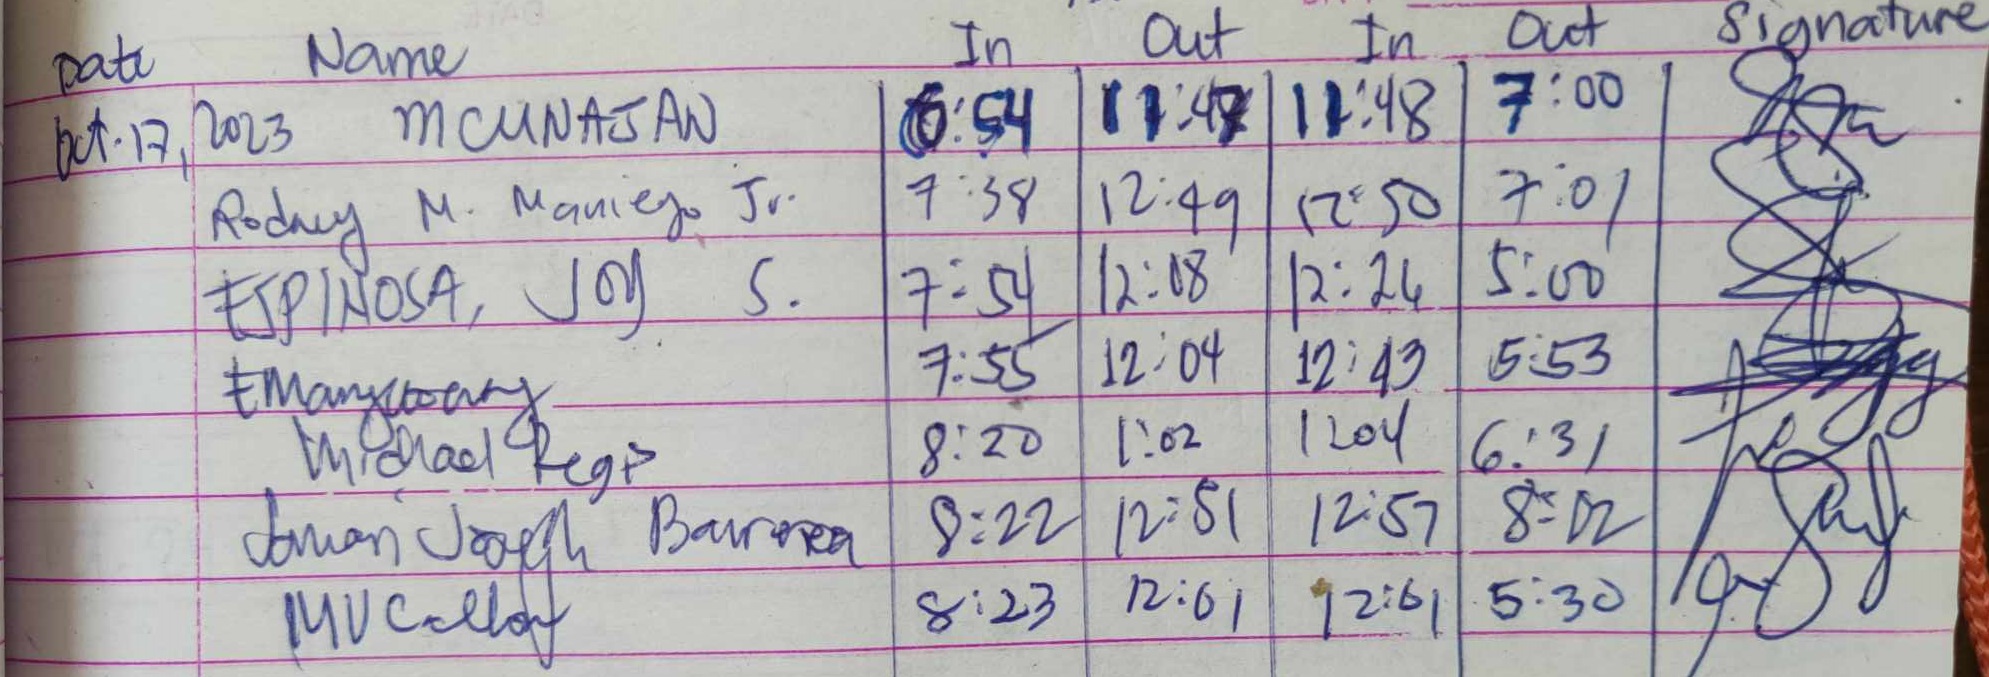 Date Name In Out In Out Signature
Oct. 17, 2023 MCUNAJAN 6:54 11:47 11:48 7:00
Rodney M. Maniego Jr. 7:38 12:49 12:50 7:01
ESPINOSA, JOY S. 7:54 12:08 12:26 5:00
7:55 12:04 12:43 5:53
Michael 8:20 1:02 1204 6:31
Joseph 8:22 12:51 12:57 8:02
8:23 12:01 12:01 5:30